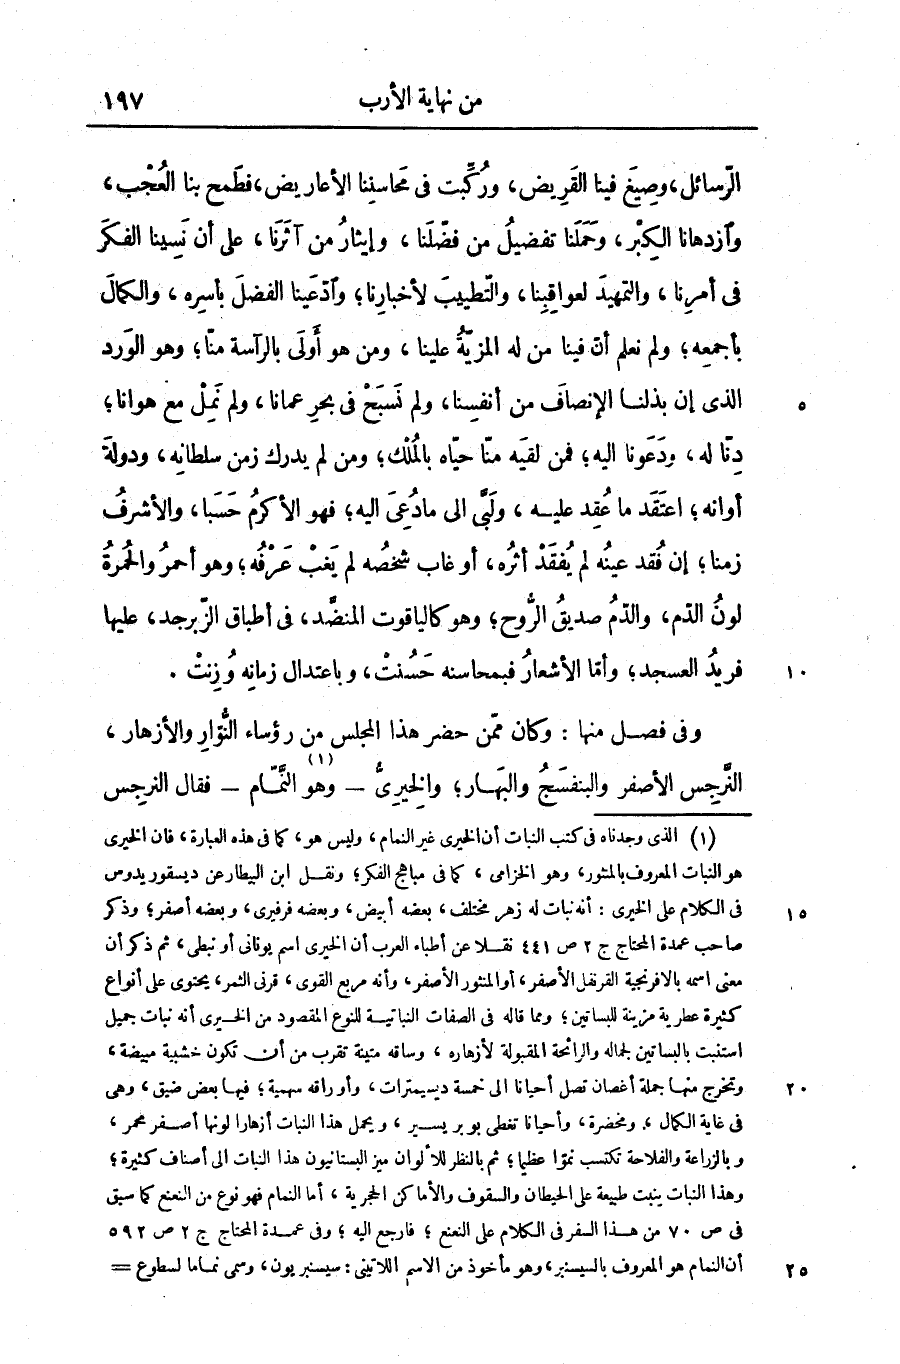 من نهاية الأرب ١٩٧
الرّسائل، وصِيغَ فينا القَرِيض، ورُكِّبت فى محَاسنِنا الأعاريض، فطَمح بنا العُجْب،
وٱزدهانا الكِبْر، وحَمَلَنا تفضيلُ من فضّلَنا، وإيثارُ من آثَرَنا، على أن نَسِينا الفكرَ
فى أمرِنا، والتمهيدَ لعواقبِنا، والتّطييبَ لأخبارِنا؛ وٱدّعَينا الفضلَ بأسرِه، والكمالَ
بأجمعِه؛ ولم نعلم أنّ فينا من له المزيّةُ علينا، ومن هو أَولَى بالرآسة منّا؛ وهو الوَرد
الذى إن بذلنا الإنصافَ من أنفسِنا، ولم نَسبَحْ فى بحرِ عمانا، ولم نَمِلْ مع هوانا؛ ٥
دِنّا له، ودَعَونا اليه؛ فمن لقيَه منّا حيّاه بالمُلْك؛ ومن لم يدرك زمن سلطانِه، ودولةَ
أوانه؛ اعتَقَد ما عُقِد عليه، ولَبَّى الى ما دُعِىَ اليه؛ فهو الأكرمُ حَسَبا، والأشرفُ
زمنا؛ إن فُقد عينُه لم يُفقَدْ أثرُه، أو غاب شخصُه لم يَغبْ عَرْفُه؛ وهو أحمرُ والحُمرةُ
لونُ الدّم، والدّمُ صديقُ الرُّوح؛ وهو كالياقوت المنضَّد، فى أطباق الزّبرجد، عليها
فريدُ العسجد؛ وأمّا الأشعارُ فبمحاسنه حَسُنتْ، وباعتدال زمانِه وُزِنتْ. ١٠
وفى فصل منها: وكان ممّن حضر هذا المجلس من رؤساء النُّوّار والأزهار،
النَّرجِس الأصفر والبنفسَجُ والبَهَار؛ والخِيرىُّ — وهو النَّمّام (١) — فقال النرجس
(١) الذى وجدناه فى كتب النبات أن الخيرى غير النمام، وليس هو، كما فى هذه العبارة، فان الخيرى
هو النبات المعروف بالمنثور، وهو الخزامى، كما فى مباهج الفكر؛ ونقل ابن البيطار عن ديسقوريدوس
فى الكلام على الخيرى: أنه نبات له زهر مختلف، بعضه أبيض، وبعضه فرفيرى، وبعضه أصفر؛ وذكر ١٥
صاحب عمدة المحتاج ج ٢ ص ٤٤١ نقلا عن أطباء العرب أن الخيرى اسم يونانى أو نبطى، ثم ذكر أن
معنى اسمه بالافرنجية القرنفل الأصفر، أو المنثور الأصفر، وأنه مربع القوى، قرنى الثمر، يحتوى على أنواع
كثيرة عطرية مزينة للبساتين؛ ومما قاله فى الصفات النباتية للنوع المقصود من الخيرى أنه نبات جميل
استنبت بالبساتين لجماله والرائحة المقبولة لأزهاره، وساقه متينة تقرب من أن تكون خشبية مبيضة،
وتخرج منها جملة أغصان تصل أحيانا الى خمسة ديسيمترات، وأوراقه سهمية؛ فيها بعض ضيق، وهى ٢٠
فى غاية الكمال، ومخضرة، وأحيانا تغطى بوبر يسير، ويحمل هذا النبات أزهارا لونها أصفر محمر،
وبالزراعة والفلاحة تكتسب نموّا عظيما؛ ثم بالنظر للألوان ميز البستانيون هذا النبات الى أصناف كثيرة؛
وهذا النبات ينبت طبيعة على الحيطان والسقوف والأماكن الحجرية، أما النمام فهو نوع من النعنع كما سبق
فى ص ٧٠ من هذا السفر فى الكلام على النعنع؛ فارجع اليه؛ وفى عمدة المحتاج ج ٢ ص ٥٩٢
أن النمام هو المعروف بالسيسنبر، وهو مأخوذ من الاسم اللاتينى: سيسنبريون، وسمى نماما لسطوع = ٢٥